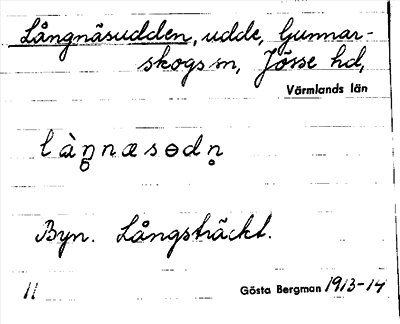 Långnäsudden, udde, Gunnar-
skogs sn, Jösse hd,
Värmlands län
là̀n̥næsɵdn̥
Byn. Långsträckt.
11 Gösta Bergman 1913-14